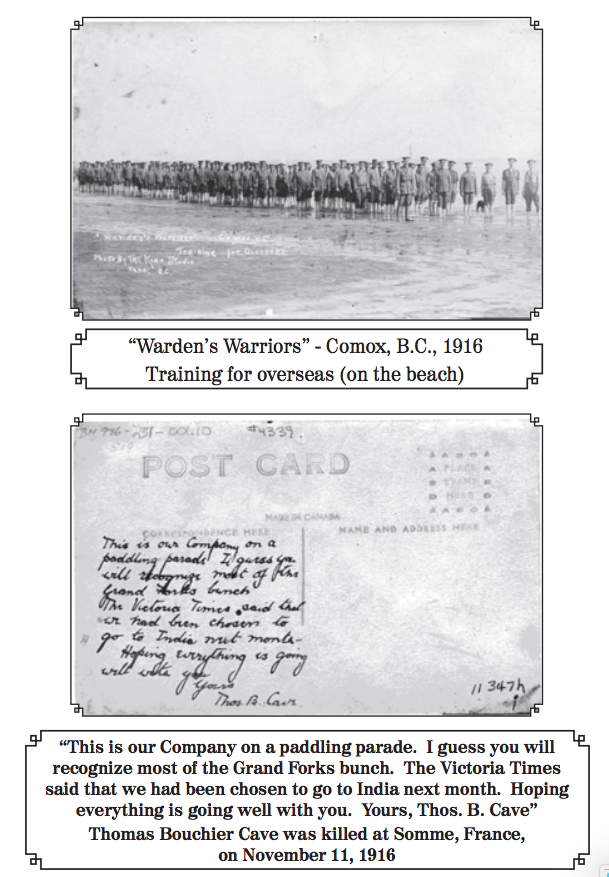 "Warden's Warriors" Comox B.C.
Training for Overseas
Photo By The King Studio
"Warden's Warriors" - Comox, B.C., 1916
Training for overseas (on the beach)
#4339.
POST CARD
PLACE
STAMP
HERE
MADE IN CANADA
CORRESPONDENCE HERE
NAME AND ADDRESS HERE
This is our Company on a
paddling parade I guess you
will recognize most of the
Grand Forks bunch
The Victoria Times said that
we had been chosen to
go to India next month-
Hoping everything is going
well with you
Yours
Thos. B. Cave
"This is our Company on a paddling parade.  I guess you will
recognize most of the Grand Forks bunch.  The Victoria Times
said that we had been chosen to go to India next month.  Hoping
everything is going well with you.  Yours, Thos. B. Cave"
Thomas Bouchier Cave was killed at Somme, France,
on November 11, 1916